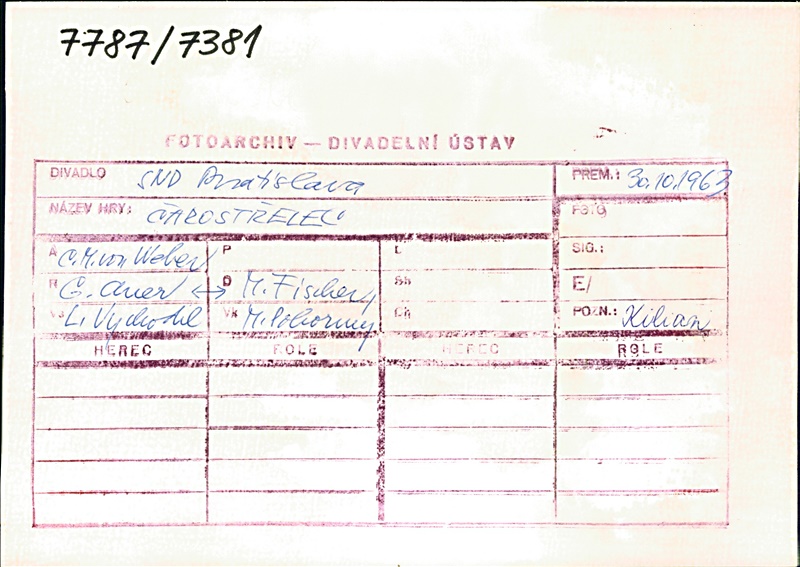 7787/7381
FOTOARCHIV — DIVADELNÍ ÚSTAV
DIVADLO SND Bratislava PREM.: 30.10.1963
NÁZEV HRY: ČAROSTŘELEC FOTO
A C.M. von Weber P L SIG.:
R G. Auer ↔ D M. Fischer Sb E/
L. Vychodil Vk M. Pokorny Ch POZN.: Kilian
HEREC ROLE HEREC ROLE